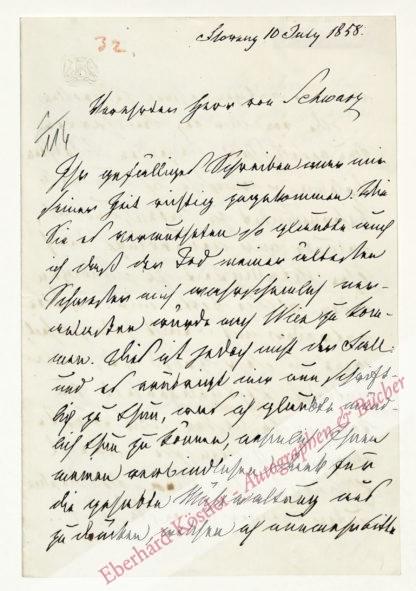 32.
Florenz 10 July 1858.
Verehrter Herr von Schwarz
1/114
Ihr gefälliges Schreiben war mir
seiner Zeit richtig zugekommen. Wie
Sie es vermutheten so glaubte auch
ich daß der Tod meiner ältesten
Schwester mich wahrscheinlich ver-
anlassen würde nach Wien zu kom-
men. Dies ist jedoch nicht der Fall:
und es erübrigt mir nun schrift-
lich zu thun, was ich glaubte münd-
lich thun zu können, nehmlich Ihnen
meinen verbindlichen Dank für
die gehabte Mühewaltung aus
zu drücken, welchen ich anzunehmen bitte
Eberhard Köstler - Autographen & Bücher